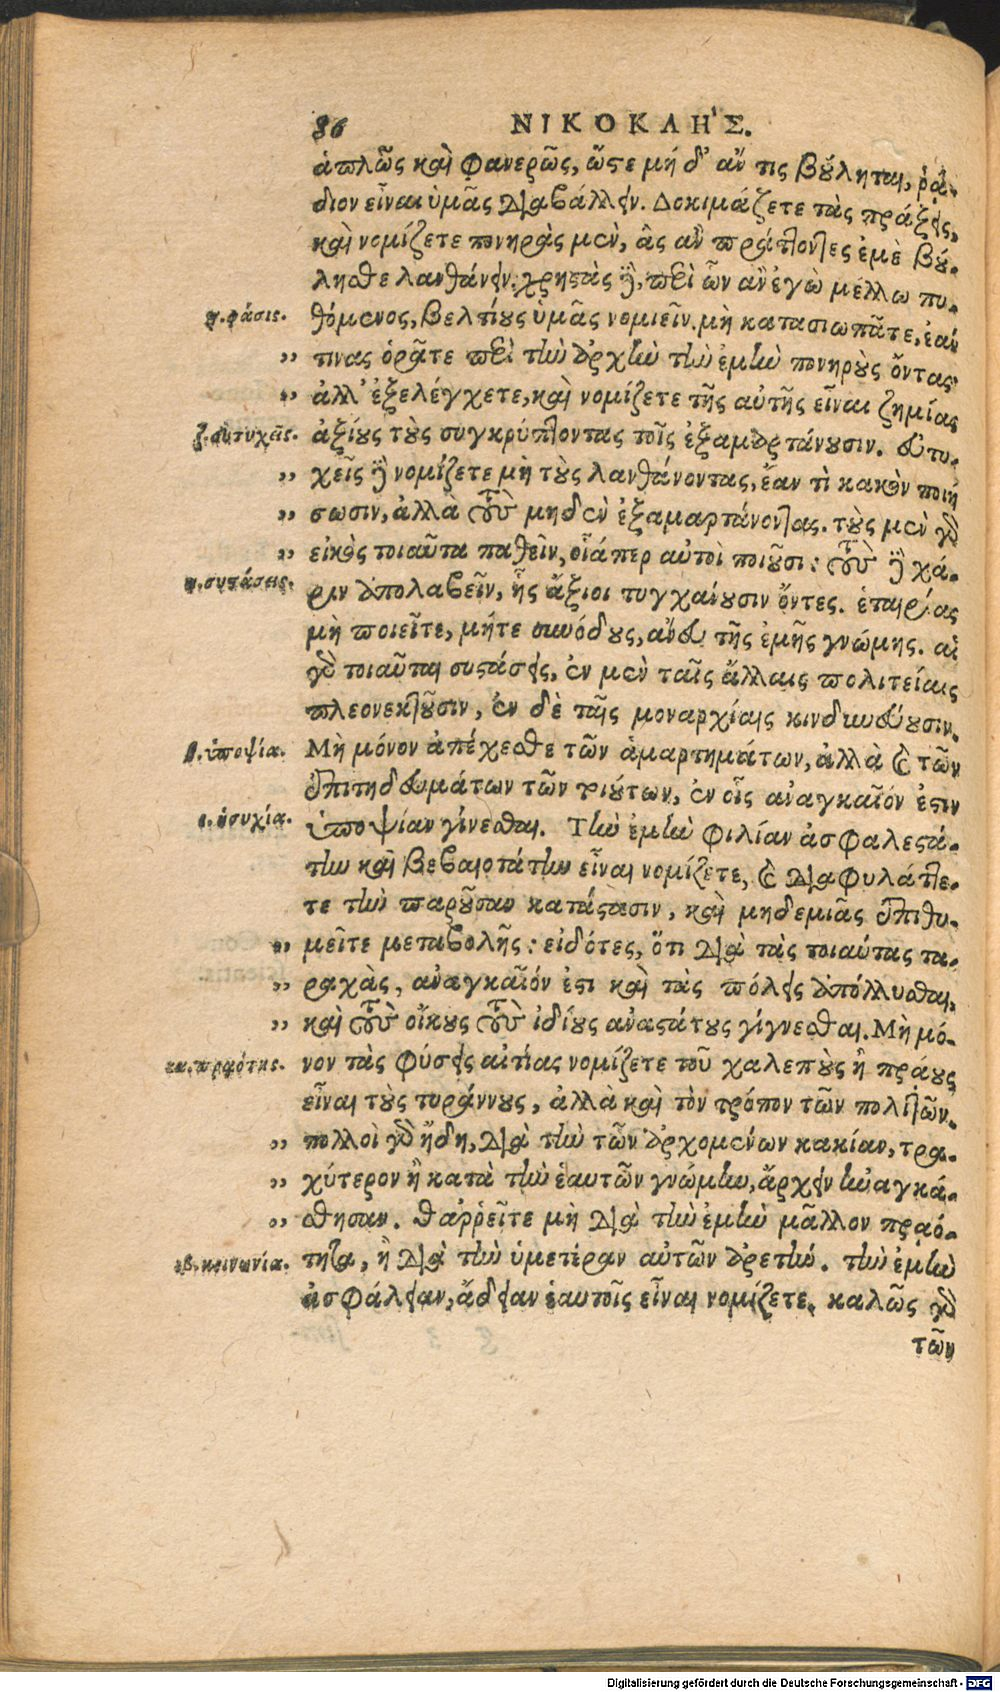 86 ΝΙΚΟΚΛΗ'Σ.
ἁπλῶς καὶ φανερῶς, ὥστε μή δ' ἄν τις βούληται, ῥᾴ-
διον εἶναι ὑμᾶς διαβάλλειν. Δοκιμάζετε τὰς πράξεις,
καὶ νομίζετε πονηρὰς μὲν, ἃς ἂν πράττοντες ἐμὲ βού-
λησθε λανθάνειν: χρηστὰς δὲ, περὶ ὧν ἂν ἐγὼ μέλλω πυ-
θόμενος, βελτίους ὑμᾶς νομιεῖν. μὴ κατασιωπᾶτε, ἐάν
τινας ὁρᾶτε περὶ τὴν ἀρχὴν τὴν ἐμὴν πονηροὺς ὄντας·
ἀλλ' ἐξελέγχετε, καὶ νομίζετε τῆς αὐτῆς εἶναι ζημίας
ἀξίους τοὺς συγκρύπτοντας τοῖς ἐξαμαρτάνουσιν. εὐτυ-
χεῖς δὲ νομίζετε μὴ τοὺς λανθάνοντας, ἐάν τὶ κακὸν ποιή
σωσιν, ἀλλὰ τοὺς μηδὲν ἐξαμαρτάνοντας. τοὺς μὲν γὰρ
εἰκὸς τοιαῦτα παθεῖν, οἷά περ αὐτοὶ ποιοῦσι: τοὺς δὲ χά-
ριν ἀπολαβεῖν, ἧς ἄξιοι τυγχάνουσιν ὄντες. ἑταιρίας
μὴ ποιεῖτε, μήτε συνόδους, ἄνευ τῆς ἐμῆς γνώμης. αἱ
γὰρ τοιαῦται συστάσεις, ἐν μὲν ταῖς ἄλλαις πολιτείαις
πλεονεκτοῦσιν, ἐν δὲ ταῖς μοναρχίαις κινδυνεύουσιν.
Μὴ μόνον ἀπέχεσθε τῶν ἁμαρτημάτων, ἀλλὰ καὶ τῶν
ἐπιτηδευμάτων τῶν τοιούτων, ἐν οἷς ἀναγκαῖόν ἐστιν
ὑποψίαν γίνεσθαι. Τὴν ἐμὴν φιλίαν ἀσφαλεστά-
την καὶ βεβαιοτάτην εἶναι νομίζετε, καὶ διαφυλάττε-
τε τὴν παροῦσαν κατάστασιν, καὶ μηδεμιᾶς ἐπιθυ-
μεῖτε μεταβολῆς: εἰδότες, ὅτι διὰ τὰς τοιαύτας τα-
ραχὰς, ἀναγκαῖόν ἐστι καὶ τὰς πόλεις ἀπόλλυσθαι,
καὶ τοὺς οἴκους τοὺς ἰδίους ἀναστάτους γίγνεσθαι. Μὴ μό-
νον τὰς φύσεις αἰτίας νομίζετε τοῦ χαλεποὺς ἢ πράους
εἶναι τοὺς τυράννους, ἀλλὰ καὶ τὸν τρόπον τῶν πολιτῶν.
πολλοὶ γὰρ ἤδη, διὰ τὴν τῶν ἀρχομένων κακίαν, τρα-
χύτερον ἢ κατὰ τὴν ἑαυτῶν γνώμην, ἄρχειν ἠναγκά-
σθησαν. θαῤῥεῖτε μὴ διὰ τὴν ἐμὴν μᾶλλον πραό-
τητα, ἢ διὰ τὴν ὑμετέραν αὐτῶν ἀρετήν. τὴν ἐμὴν
ἀσφάλειαν, ἄδειαν ἑαυτοῖς εἶναι νομίζετε. καλῶς γὰρ
τῶν
φάσις.
ζ. εὐτυχεῖς.
η. συστάσεις.
θ. ὑποψία.
ι. ἡσυχία.
ια. πραότης.
ιβ. κοινωνία.
Digitalisierung gefördert durch die Deutsche Forschungsgemeinschaft - DFG